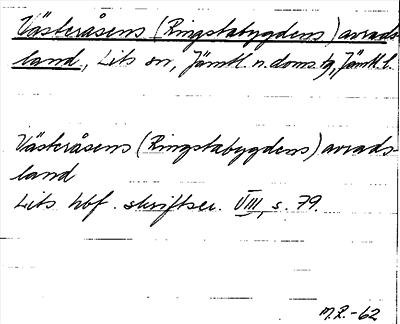 Västeråsens (Ringstabygdens) avrads-
land, Lits sn, Jämtl. n. doms. tg, Jämtl. l.
Västeråsens (Ringstabygdens) avrads-
land
Lits hbf. skriftser. VIII, s. 79.
M.R.-62